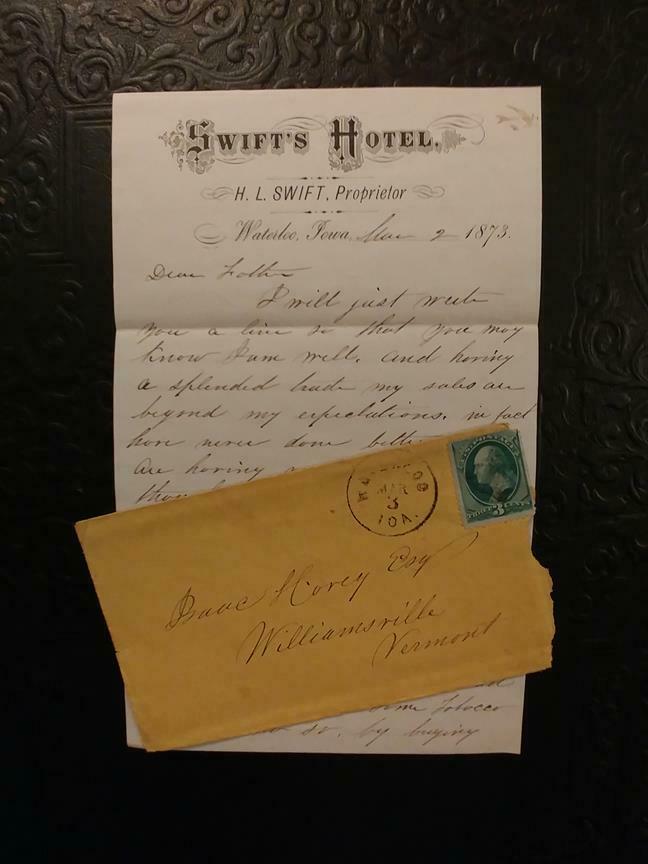 SWIFT'S HOTEL.
H. L. SWIFT, Proprietor
Waterloo, Iowa, Mar 2 1873.
Dear Father
I will just write
you a line so that you may
know I am well. and having
a splended trade my sales are
beyond my expectations. in fact
have never done better
are having
WATERLOO
MAR
3
IOA.
U.S. POSTAGE
THREE 3 CENTS
Isaac Morey Esq
Williamsville
Vermont
some Tobacco
so. by buying